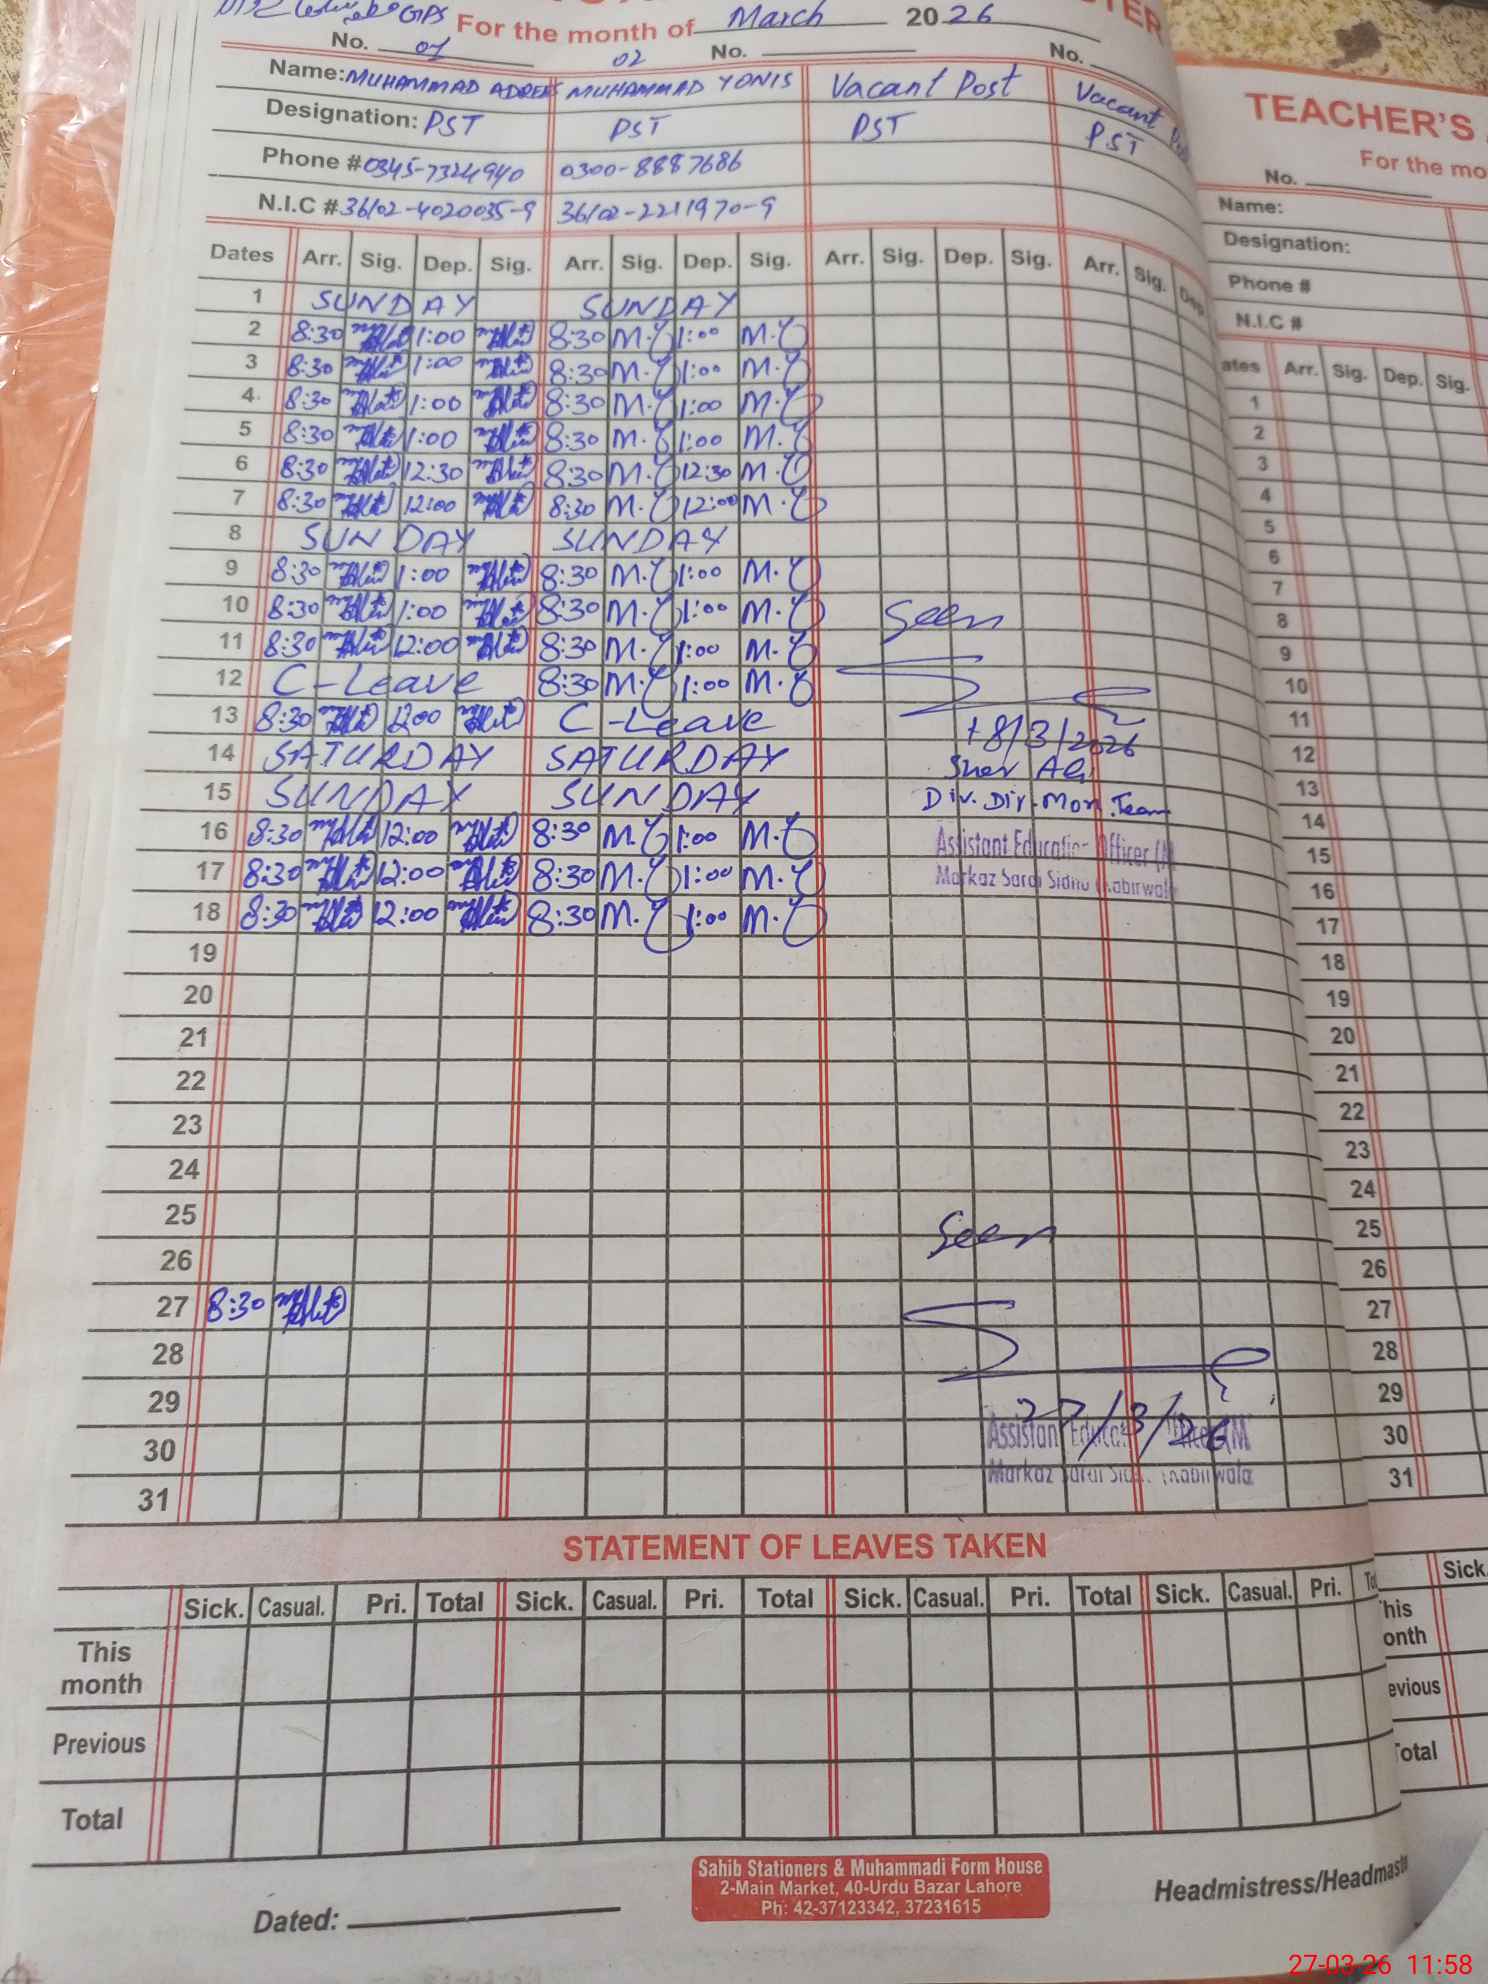 GPS
For the month of March 2026
No. 01 02 No. No.
Name: MUHAMMAD ADREES MUHAMMAD YONIS Vacant Post Vacant
Designation: PST PST PST PST
Phone # 0345-7324940 0300-8887686
N.I.C # 36102-4020035-9 36102-2211970-9
Dates Arr. Sig. Dep. Sig. Arr. Sig. Dep. Sig. Arr. Sig. Dep. Sig. Arr. Sig. Dep.
1 SUNDAY SUNDAY
2 8:30 1:00 8:30 M.Y 1:00 M.Y
3 8:30 1:00 8:30 M.Y 1:00 M.Y
4 8:30 1:00 8:30 M.Y 1:00 M.Y
5 8:30 1:00 8:30 M.Y 1:00 M.Y
6 8:30 12:30 8:30 M.Y 12:30 M.Y
7 8:30 12:00 8:30 M.Y 12:00 M.Y
8 SUNDAY SUNDAY
9 8:30 1:00 8:30 M.Y 1:00 M.Y
10 8:30 1:00 8:30 M.Y 1:00 M.Y Seen
11 8:30 12:00 8:30 M.Y 1:00 M.Y
12 C-Leave 8:30 M.Y 1:00 M.Y
13 8:30 12:00 C-Leave 18/3/2026
14 SATURDAY SATURDAY Sher Ali
15 SUNDAY SUNDAY Div. Dir. Mon. Team
16 8:30 12:00 8:30 M.Y 1:00 M.Y Assistant Education Officer (M
17 8:30 12:00 8:30 M.Y 1:00 M.Y Markaz Sardar Sidhu
18 8:30 12:00 8:30 M.Y 1:00 M.Y
19
20
21
22
23
24
25 Seen
26
27 8:30
28
29
30 27/3/26 Assistant Officer (M
31 Markaz
STATEMENT OF LEAVES TAKEN
Sick. Casual. Pri. Total Sick. Casual. Pri. Total Sick. Casual. Pri. Total Sick. Casual. Pri.
This month
Previous
Total
Sahib Stationers & Muhammadi Form House
2-Main Market, 40-Urdu Bazar Lahore
Ph: 42-37123342, 37231615
Dated:
Headmistress/Headmast
TEACHER'S
For the mo
No.
Name:
Designation:
Phone #
N.I.C #
ates Arr. Sig. Dep. Sig.
1
2
3
4
5
6
7
8
9
10
11
12
13
14
15
16
17
18
19
20
21
22
23
24
25
26
27
28
29
30
31
Sick.
his
onth
evious
otal
27-03-26 11:58